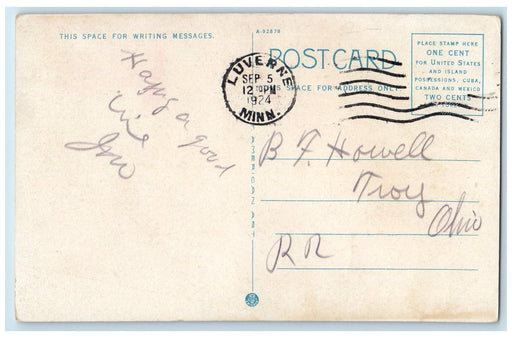 THIS SPACE FOR WRITING MESSAGES.
A-92878
POST CARD
PLACE STAMP HERE
ONE CENT
FOR UNITED STATES
AND ISLAND
POSSESSIONS, CUBA,
CANADA AND MEXICO
TWO CENTS
LUVERNE
SEP 5
12 PM
1924
MINN.
SPACE FOR ADDRESS ONLY
Having a good
time
B F Howell
Troy
Ohio
RR